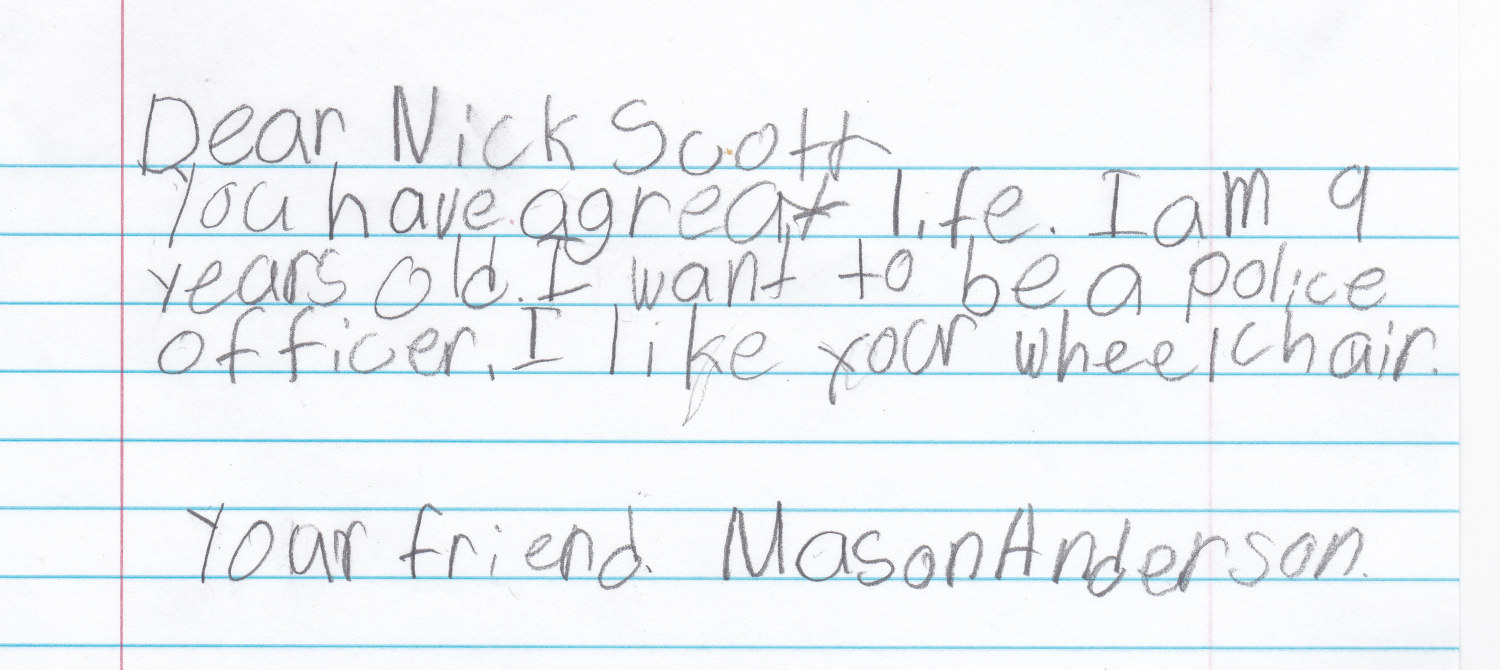 Dear Nick Scott
You have a great life. I am 9
years old. I want to be a police
officer. I like your wheelchair.
Your friend. Mason Anderson.